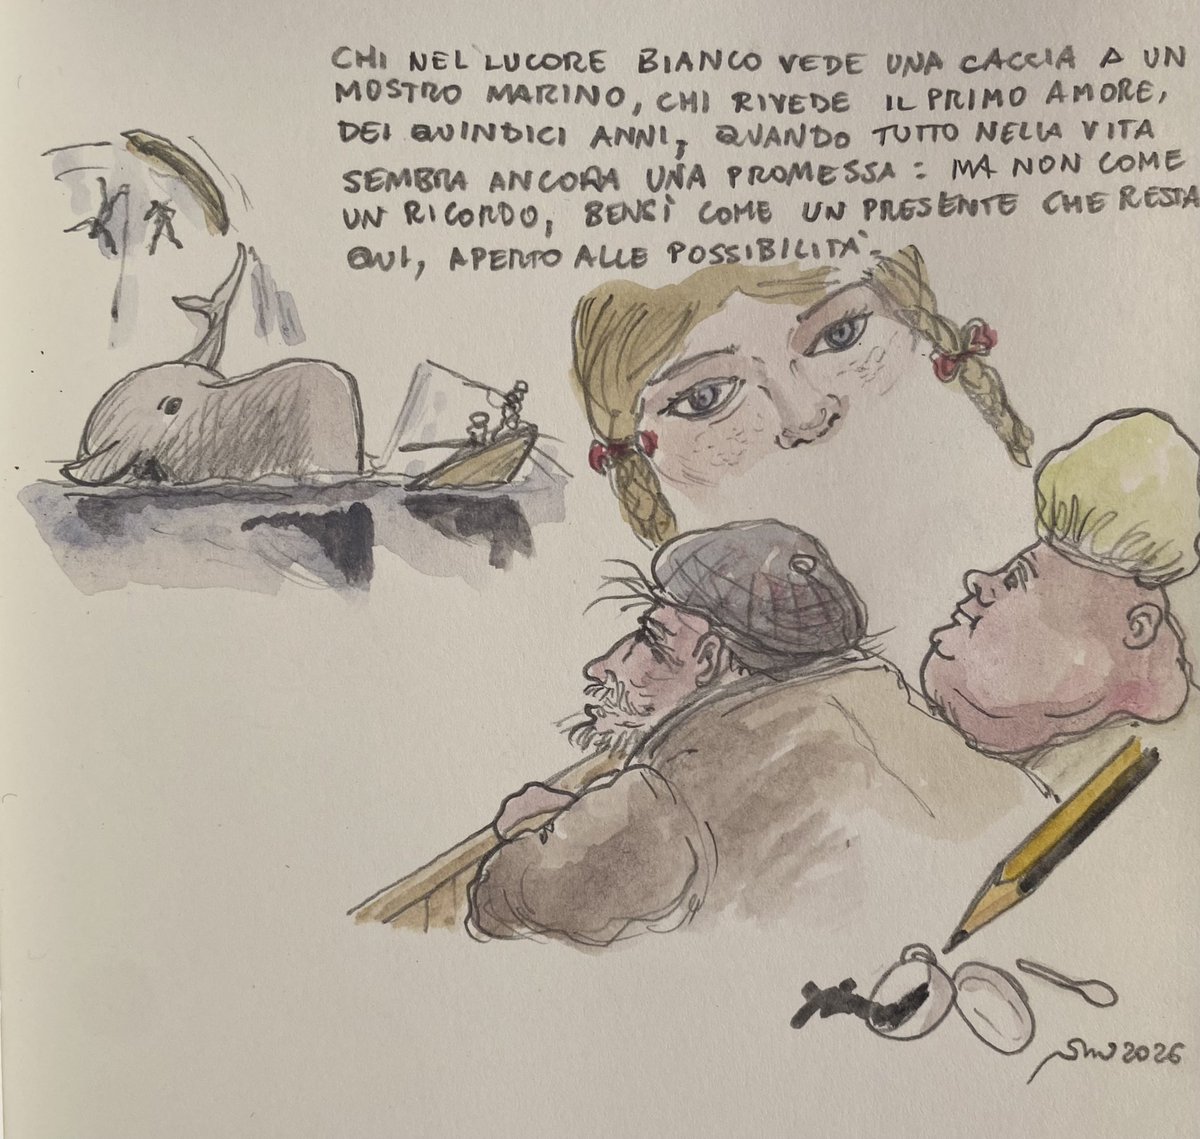 CHI NEL LUCORE BIANCO VEDE UNA CACCIA A UN
MOSTRO MARINO, CHI RIVEDE IL PRIMO AMORE,
DEI QUINDICI ANNI, QUANDO TUTTO NELLA VITA
SEMBRA ANCORA UNA PROMESSA: MA NON COME
UN RICORDO, BENSÌ COME UN PRESENTE CHE RESTA
QUI, APERTO ALLE POSSIBILITÀ.
2026